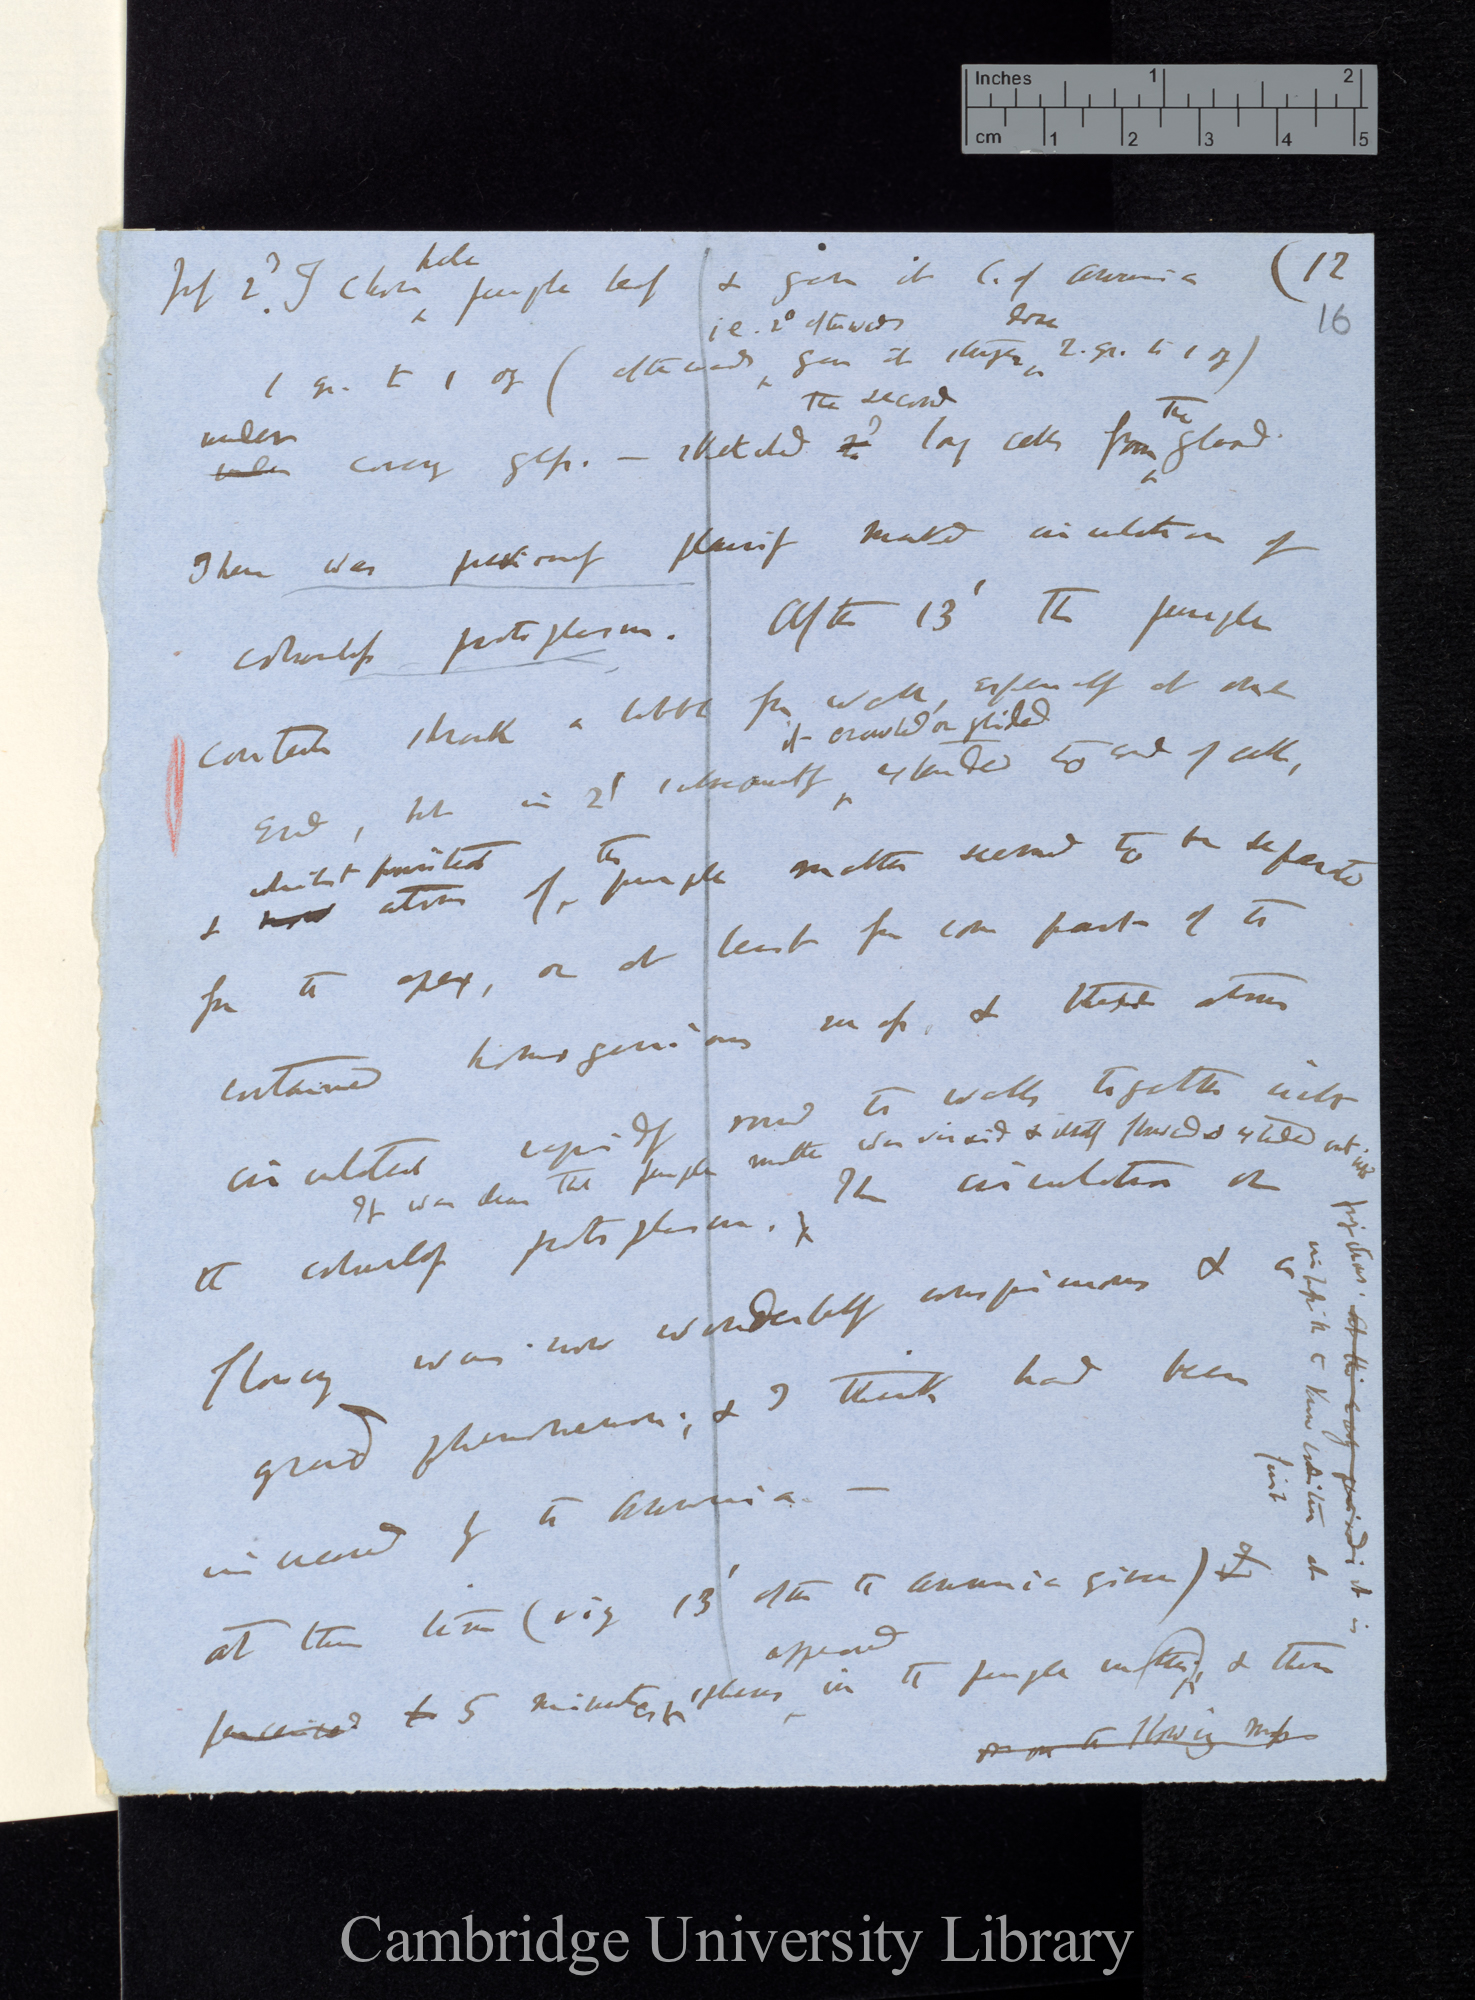 Inches 1 2
cm 1 2 3 4 5
(12
16
July 2d. I chose pale purple leaf & gave it C. of Ammonia
i.e. 2° afterwards dose
1 gr. to 1 oz (afterwards gave it stronger 2. gr. to 1 oz)
the second the
under
under cover glass. — sketched 2d long cells from gland.
There was previously plainly marked circulation of
colourless protoplasm. After 13' the purple
contents shrank a little from walls, especially at one
it crawled or glided
end, but in 2' subsequently extended to end of cell,
whilst pointed the
& now atoms of purple matter seemed to be separate
from the apex, or at least from some part of the
contained homogeneous mass, & these atoms
circulated rapidly round the walls together with
It was clear that purple matter was viscid & itself flowed & extended out into
the colourless protoplasm. The circulation or
projections. it is
impossible to know whether the
first
flowing was now wonderfully conspicuous & a
grand phenomenon; & I think had been
increased by the Ammonia. —
At this time (viz 13' after the Ammonia given)
appeared
perceived 5 minutest spheres in the purple matter, & then
or on the flowing mass
Cambridge University Library